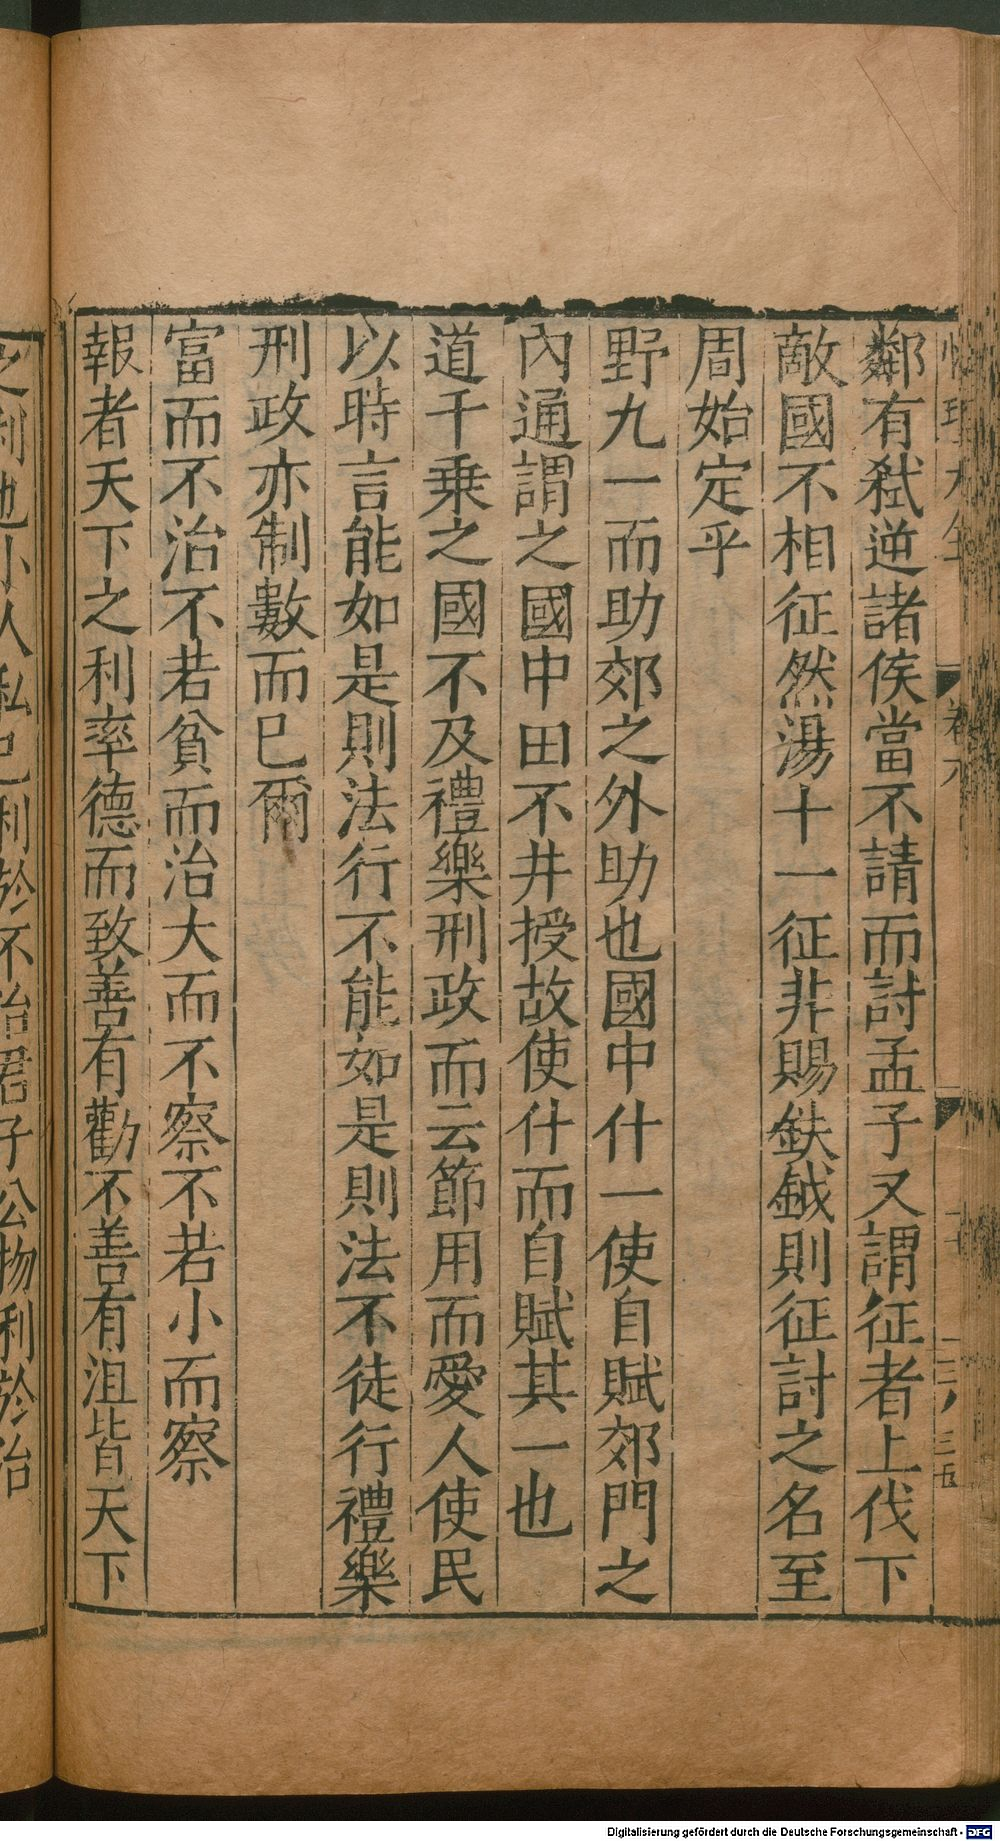 鄰有弒逆諸侯當不請而討孟子又謂征者上伐下
敵國不相征然湯十一征非賜鈇鉞則征討之名至
周始定乎
野九一而助郊之外助也國中什一使自賦郊門之
內通謂之國中田不井授故使什而自賦其一也
道千乗之國不及禮樂刑政而云節用而愛人使民
以時言能如是則法行不能如是則法不徒行禮樂
刑政亦制數而已爾
富而不治不若貧而治大而不察不若小而察
報者天下之利率德而致善有勸不善有沮皆天下
之利也小人私己利於不治君子公物利於治
Digitalisierung gefördert durch die Deutsche Forschungsgemeinschaft - DFG